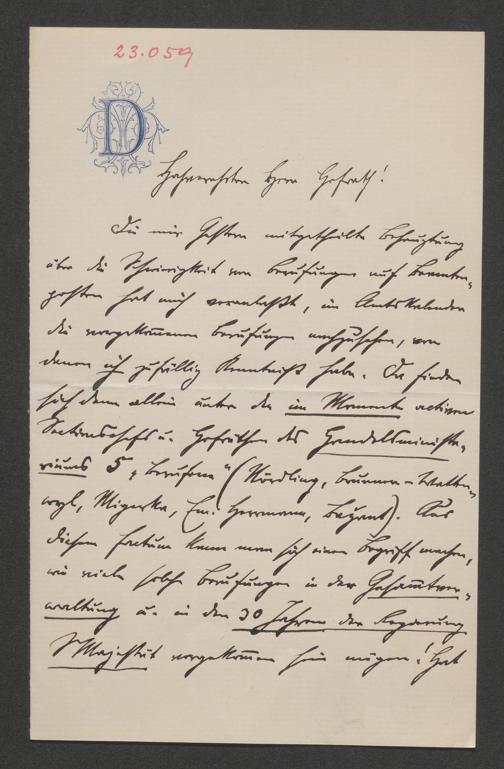 23.059
D
Hochverehrter Herr Hofrath!
Die mir gestern mitgetheilte Behauptung
über die Schwierigkeit von Berufungen auf Beamten-
posten hat mich veranlaßt, im Amtskalender
die vorgekommenen Berufungen nachzusehen, von
denen ich zufällig Kenntniß habe. Da finden
sich denn allein unter den im Momente activen
Sectionschefs u. Hofräthen des Handelsministe-
riums 5 "Berufene" (Nördling, Brunner-Watten-
wyl, Migerka, Em. Herrmann, Bazant). Aus
diesem Factum kann man sich einen Begriff machen,
wie viele solche Berufungen in der Gesammtver-
waltung u. in den 30 Jahren der Regierung
S Majestät vorgekommen sein mögen! Hat